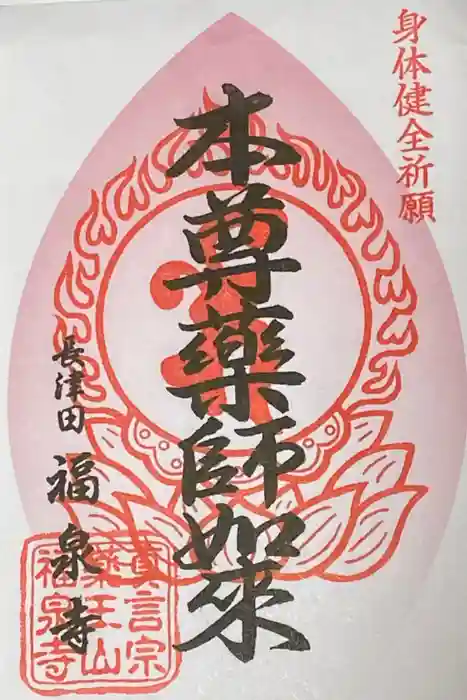 身体健全祈願
本尊薬師如來
長津田
福泉寺
真言宗
薬王山
福泉寺